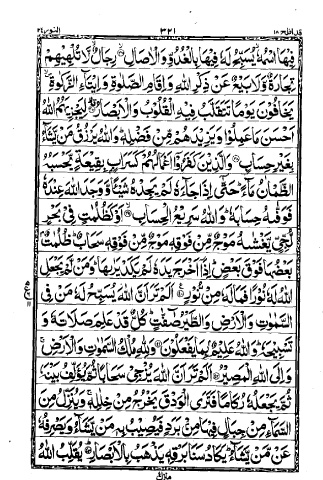 قد افلح ۱۸ ۳۲۱ النور ۲۴
فِيْهَا اسْمُهٗ يُسَبِّحُ لَهٗ فِيْهَا بِالْغُدُوِّ وَالْاٰصَالِ رِجَالٌ لَّا تُلْهِيْهِمْ
تِجَارَةٌ وَّلَا بَيْعٌ عَنْ ذِكْرِ اللّٰهِ وَاِقَامِ الصَّلٰوةِ وَاِيْتَآءِ الزَّكٰوةِ
يَخَافُوْنَ يَوْمًا تَتَقَلَّبُ فِيْهِ الْقُلُوْبُ وَالْاَبْصَارُ لِيَجْزِيَهُمُ اللّٰهُ
اَحْسَنَ مَا عَمِلُوْا وَيَزِيْدَهُمْ مِّنْ فَضْلِهٖ وَاللّٰهُ يَرْزُقُ مَنْ يَّشَآءُ
بِغَيْرِ حِسَابٍ وَالَّذِيْنَ كَفَرُوْٓا اَعْمَالُهُمْ كَسَرَابٍۢ بِقِيْعَةٍ يَّحْسَبُهُ
الظَّمْاٰنُ مَآءً حَتّٰٓى اِذَا جَآءَهٗ لَمْ يَجِدْهُ شَيْئًا وَّوَجَدَ اللّٰهَ عِنْدَهٗ
فَوَفّٰىهُ حِسَابَهٗ وَاللّٰهُ سَرِيْعُ الْحِسَابِ اَوْ كَظُلُمٰتٍ فِيْ بَحْرٍ
لُّجِّيٍّ يَّغْشٰىهُ مَوْجٌ مِّنْ فَوْقِهٖ مَوْجٌ مِّنْ فَوْقِهٖ سَحَابٌ ظُلُمٰتٌۢ
بَعْضُهَا فَوْقَ بَعْضٍ اِذَآ اَخْرَجَ يَدَهٗ لَمْ يَكَدْ يَرٰىهَا وَمَنْ لَّمْ يَجْعَلِ
اللّٰهُ لَهٗ نُوْرًا فَمَا لَهٗ مِنْ نُّوْرٍ اَلَمْ تَرَ اَنَّ اللّٰهَ يُسَبِّحُ لَهٗ مَنْ فِي
السَّمٰوٰتِ وَالْاَرْضِ وَالطَّيْرُ صٰٓفّٰتٍ كُلٌّ قَدْ عَلِمَ صَلَاتَهٗ وَ
تَسْبِيْحَهٗ وَاللّٰهُ عَلِيْمٌۢ بِمَا يَفْعَلُوْنَ وَلِلّٰهِ مُلْكُ السَّمٰوٰتِ وَالْاَرْضِ
وَاِلَى اللّٰهِ الْمَصِيْرُ اَلَمْ تَرَ اَنَّ اللّٰهَ يُزْجِيْ سَحَابًا ثُمَّ يُؤَلِّفُ بَيْنَهٗ
ثُمَّ يَجْعَلُهٗ رُكَامًا فَتَرَى الْوَدْقَ يَخْرُجُ مِنْ خِلٰلِهٖ وَيُنَزِّلُ مِنَ
السَّمَآءِ مِنْ جِبَالٍ فِيْهَا مِنْۢ بَرَدٍ فَيُصِيْبُ بِهٖ مَنْ يَّشَآءُ وَيَصْرِفُهٗ
عَنْ مَّنْ يَّشَآءُ يَكَادُ سَنَا بَرْقِهٖ يَذْهَبُ بِالْاَبْصَارِ يُقَلِّبُ اللّٰهُ
منزل۴